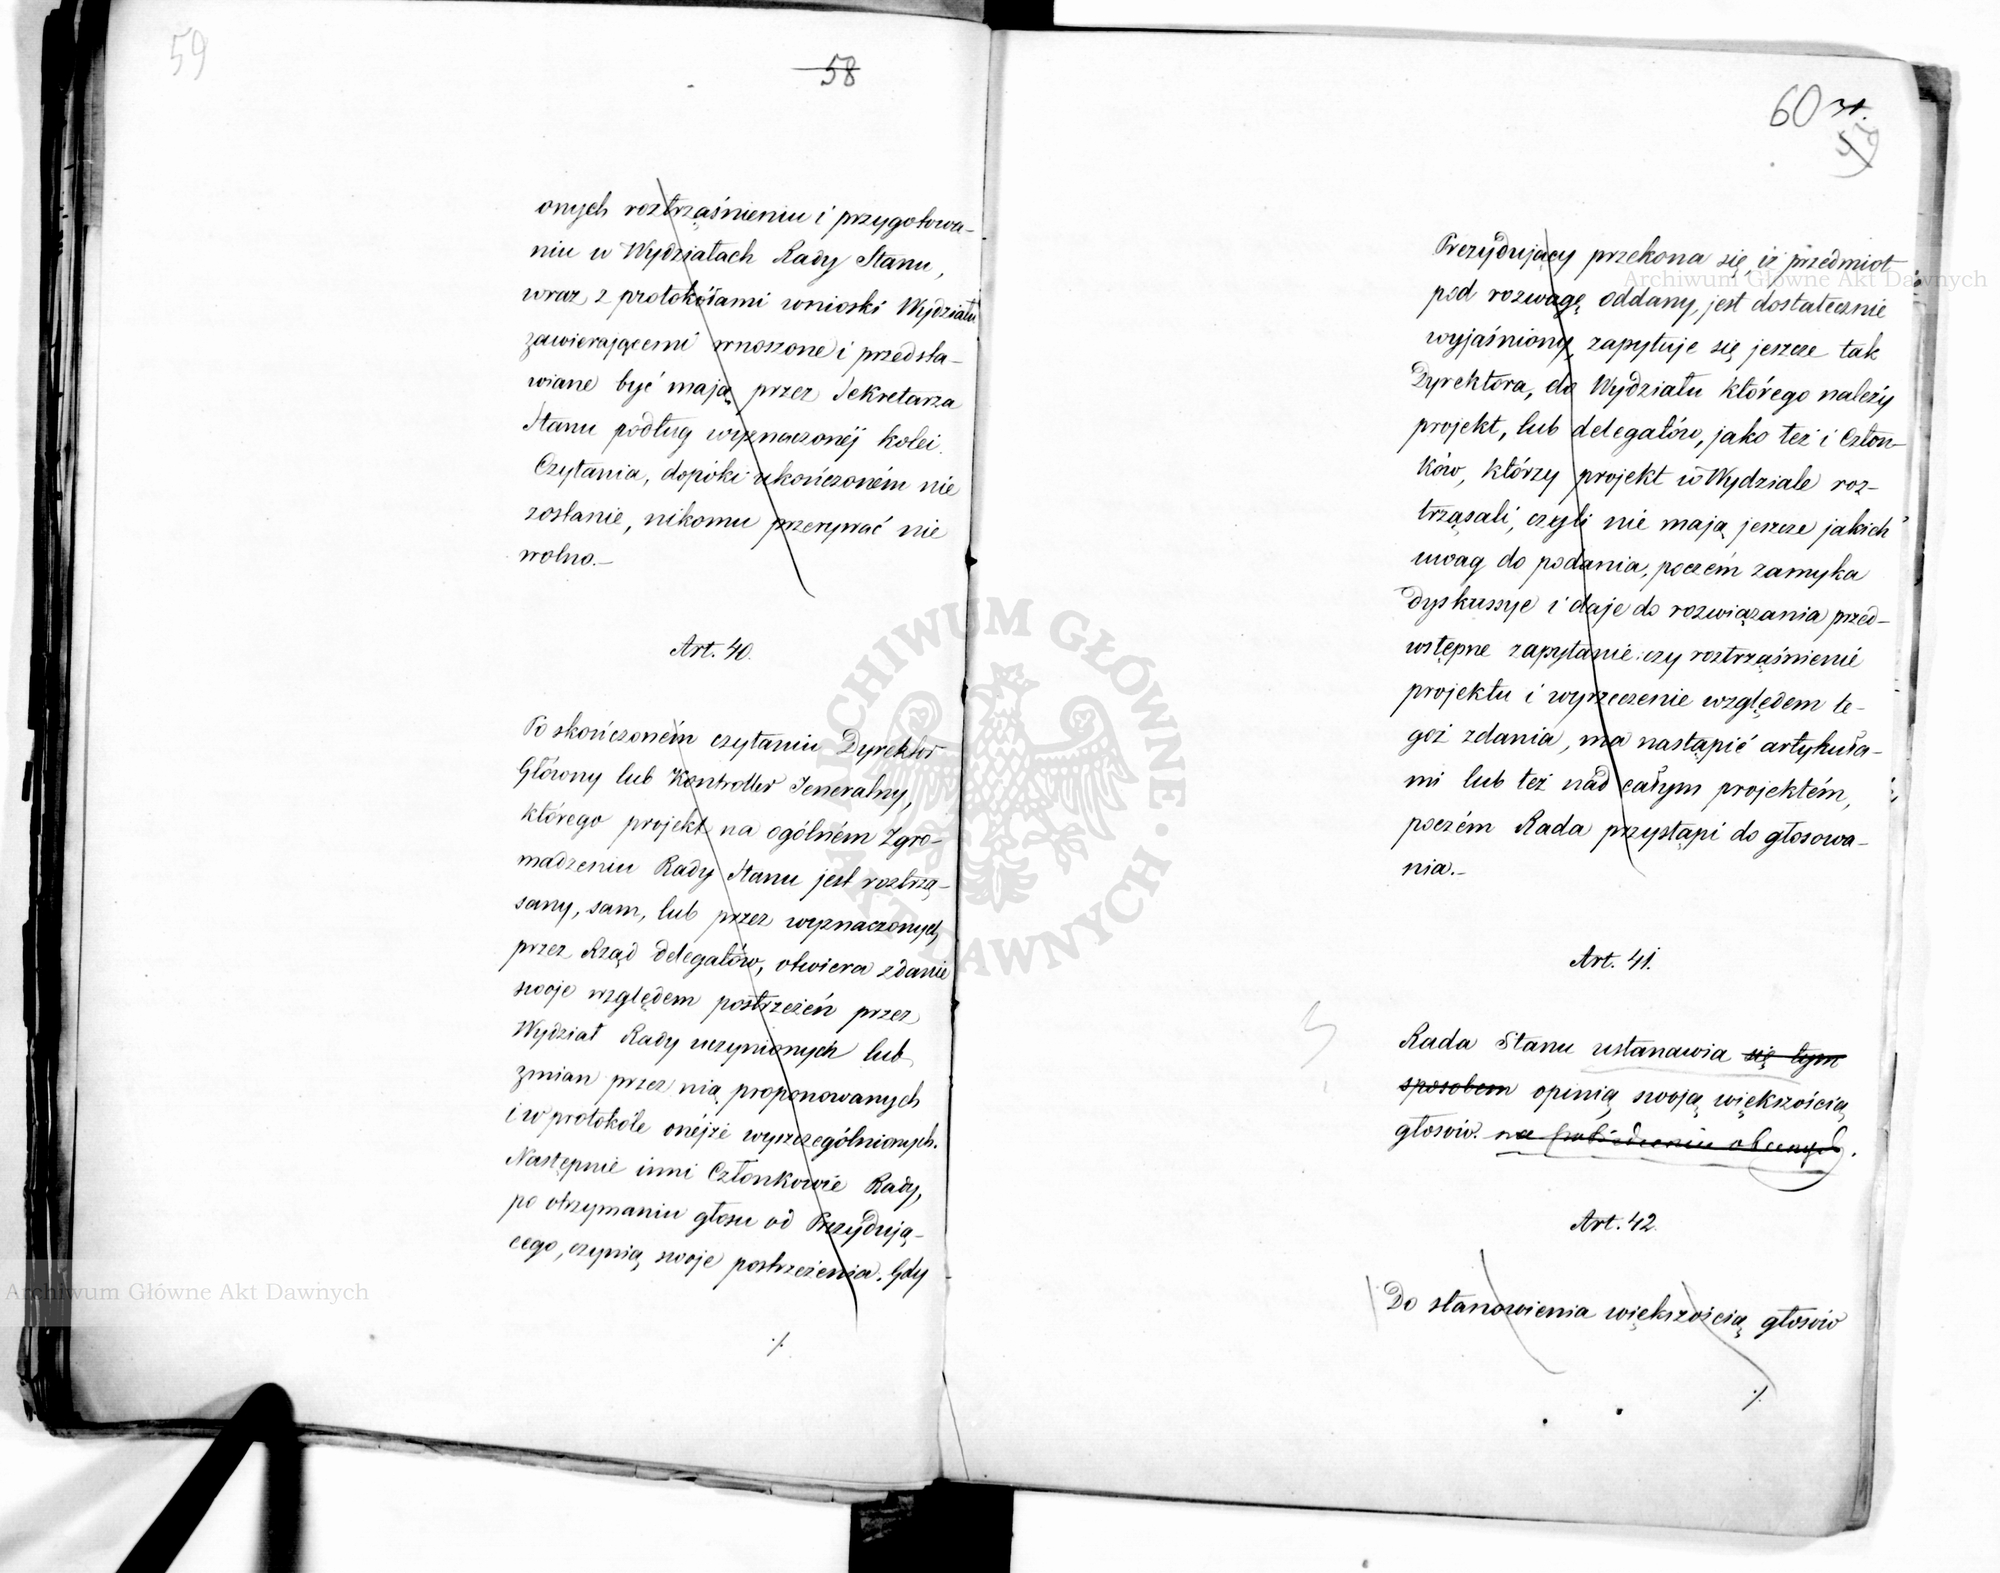 59
58
onych roztrząśnieniu i przygotowa-
niu w Wydziałach Rady Stanu,
wraz z protokółami wnioski Wydziału
zawierającemi wnoszone i przedsta-
wiane być mają przez Sekretarza
Stanu podług wyznaczonéj kolei.
Czytania, dopóki ukończoném nie
zostanie, nikomu przerywać nie
wolno.—
Art. 40.
Po skończoném czytaniu Dyrektor
Główny lub Kontroller Jeneralny,
którego projekt na ogólném Zgro-
madzeniu Rady Stanu jest roztrzą-
sany, sam, lub przez wyznaczonych
przez Rząd delegatów, otwiera zdanie
swoje względem postrzeżeń przez
Wydział Rady uczynionych lub
zmian przez nią proponowanych
i w protokóle onéjże wyszczególnionych.
Następnie inni Członkowie Rady,
po otrzymaniu głosu od Prezydują-
cego, czynią swoje postrzeżenia. Gdy
./.
60
59
Prezydujący przekona się, iż przedmiot
pod rozwagę oddany, jest dostatecznie
wyjaśniony, zapytuje się jeszcze tak
Dyrektora, do Wydziału którego należy
projekt, lub delegatów, jako też i Człon-
ków, którzy projekt w Wydziale roz-
trząsali, czyli nie mają jeszcze jakich
uwag do podania, poczém zamyka
dyskussye i daje do rozwiązania przed-
wstępne zapytanie: czy roztrząśnienie
projektu i wyrzeczenie względem te-
goż zdania, ma nastąpić artykuła-
mi lub też nad całym projektém,
poczém Rada przystąpi do głosowa-
nia.—
Art. 41.
Rada Stanu ustanawia się tym
sposobem opinią swoją większością
głosów. na posiedzeniu obecnych.
Art. 42.
Do stanowienia większością głosów
./.
Archiwum Główne Akt Dawnych
Archiwum Główne Akt Dawnych
ARCHIWUM GŁÓWNE AKT DAWNYCH